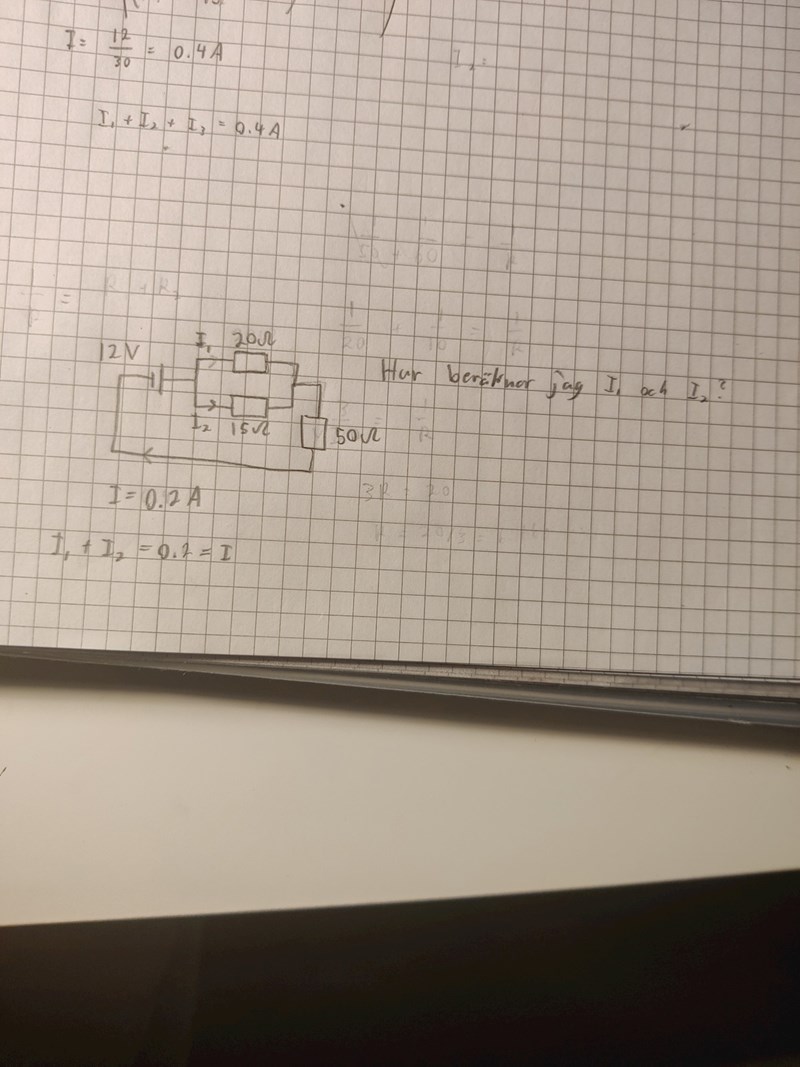 I = 12/30 = 0.4 A
I₁ + I₂ + I₃ = 0.4 A
12 V
I₁
20Ω
I₂
15Ω
50Ω
Hur beräknor jag I₁ och I₂?
I = 0.2 A
I₁ + I₂ = 0.2 = I